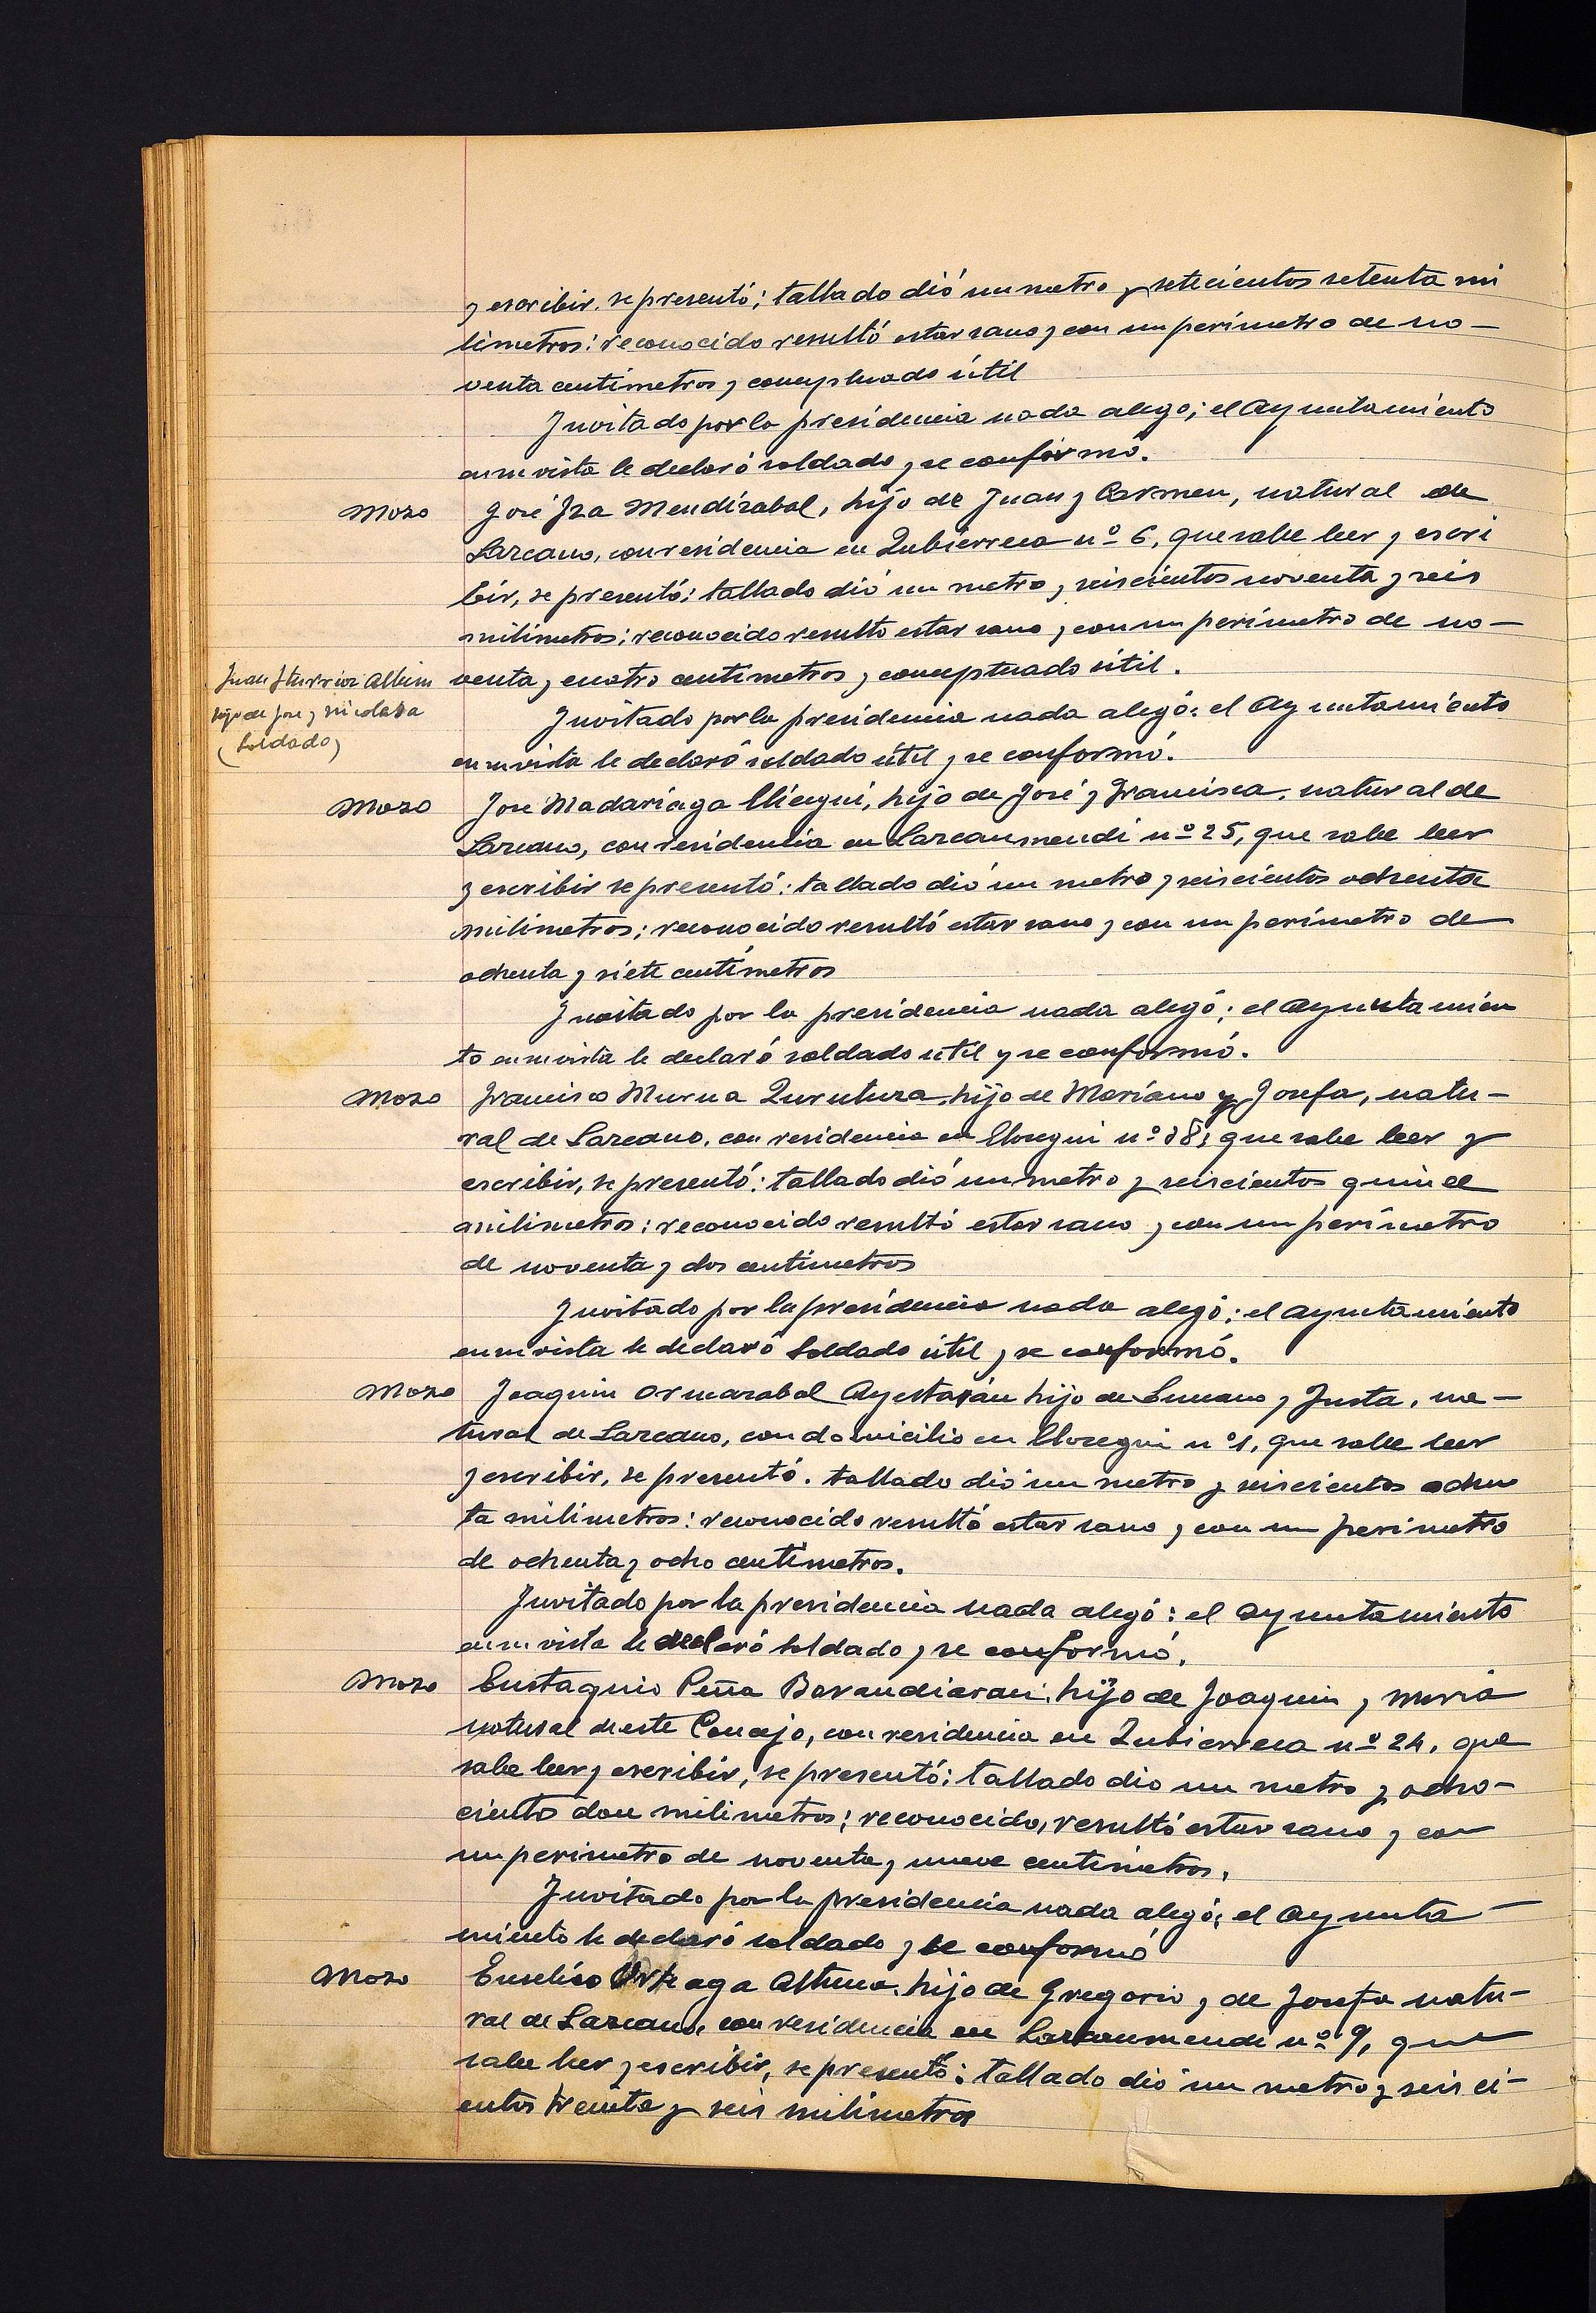 y escribir, se presentó; tallado dió un metro y setecientos setenta mi
limetros: reconocido resultó estar sano y con un perímetro de no-
venta centímetros y conceptuado útil
Invitado por la presidencia nada alegó; el Ayuntamiento
en su vista le declaró soldado y se conformó.
Mozo José Iza Mendizabal, hijo de Juan y Carmen, natural de
Lazcano, con residencia en Zubierreca nº 6, que sabe leer y escri
bir, se presentó: tallado dió un metro y seiscientos noventa y seis
milímetros; reconocido resultó estar sano y con un perímetro de no-
venta y cuatro centímetros y conceptuado útil.
Juan Iturrioz
hijo de José y Nicolasa
(Soldado)
Invitado por la presidencia nada alegó: el Ayuntamiento
en su vista le declaró soldado útil y se conformó.
Mozo José Madariaga, hijo de José y Francisca, natural de
Lazcano, con residencia en Lazcanomendi nº 25, que sabe leer
y escribir se presentó: tallado dió un metro y seiscientos ochenta
milímetros; reconocido resultó estar sano y con un perímetro de
ochenta y siete centímetros
Invitado por la presidencia nada alegó; el Ayuntamien
to en su vista le declaró soldado útil y se conformó.
Mozo Francisco Murua Zurutuza, hijo de Mariano y Josefa, natu-
ral de Lazcano, con residencia en Elosegui nº 38, que sabe leer y
escribir, se presentó: tallado dió un metro y seiscientos quince
milimetros: reconocido resultó estar sano y con un perímetro
de noventa y dos centímetros
Invitado por la presidencia nada alegó: el ayuntamiento
en su vista le declaró soldado útil y se conformó.
Mozo Joaquin Ormazabal Ayestarán hijo de y Justa, na-
tural de Lazcano, con domicilio en Elosegui nº 1, que sabe leer
y escribir, se presentó. tallado dió un metro y seiscientos ochen
ta milimetros: reconocido resultó estar sano y con un perimetro
de ochenta y ocho centímetros.
Invitado por la presidencia nada alegó: el ayuntamiento
en su vista le declaró soldado y se conformó.
Mozo Eustaquio Peña Barandiaran, hijo de Joaquin y María
natural de este Concejo, con residencia en Zubierreca nº 24, que
sabe leer y escribir, se presentó: tallado dio un metro y ocho-
cientos doce milimetros; reconocido, resultó estar sano y con
un perimetro de noventa y nueve centímetros.
Invitado por la presidencia nada alegó; el Ayunta-
miento le declaró soldado y se conformó
Mozo Eusebio Urteaga Altuna, hijo de Gregorio y de Josefa natu-
ral de Lazcano, con residencia en Lazkanomendi nº 9, que
sabe leer y escribir, se presentó: tallado dió un metro y seis ci-
entos treinta y seis milímetros